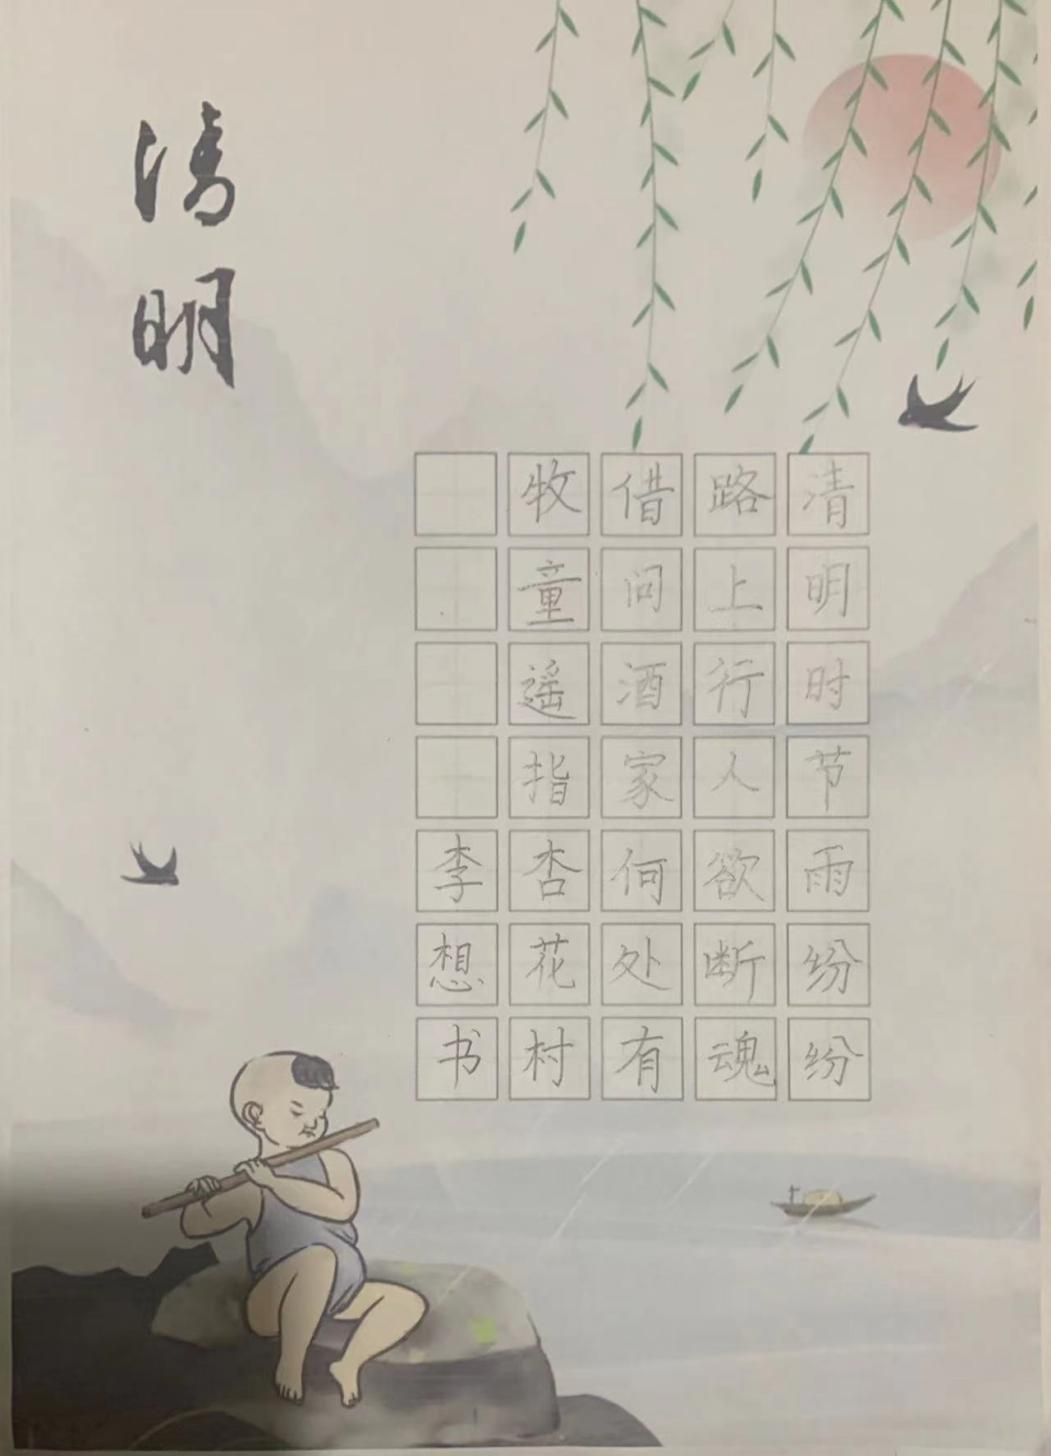 清明
清明时节雨纷纷
路上行人欲断魂
借问酒家何处有
牧童遥指杏花村
李想书